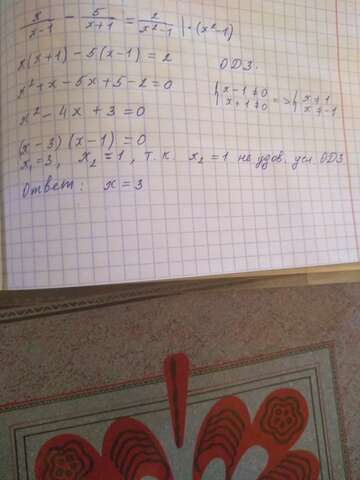 x/(x-1) - 5/(x+1) = 2/(x²-1) | · (x²-1)
x(x+1) - 5(x-1) = 2
ОДЗ:
x² + x - 5x + 5 - 2 = 0
{ x-1≠0 x+1≠0 => { x≠1 x≠-1
x² - 4x + 3 = 0
(x-3)(x-1) = 0
x₁=3, x₂=1, т.к. x₂=1 не удов. усл ОДЗ
Ответ: x=3